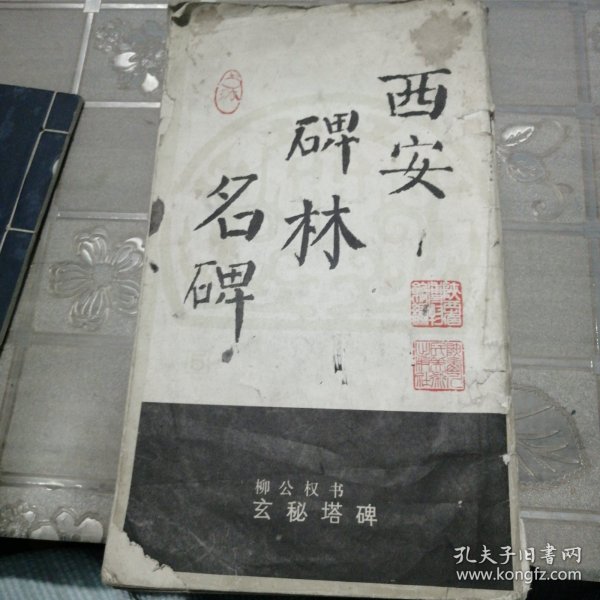 西安
碑林
名碑
柳公权书
玄秘塔碑
孔夫子旧书网
www.kongfz.com